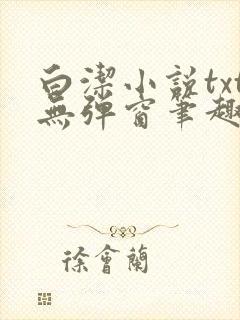 白潔小說txt
無彈窗筆趣
徐會蘭